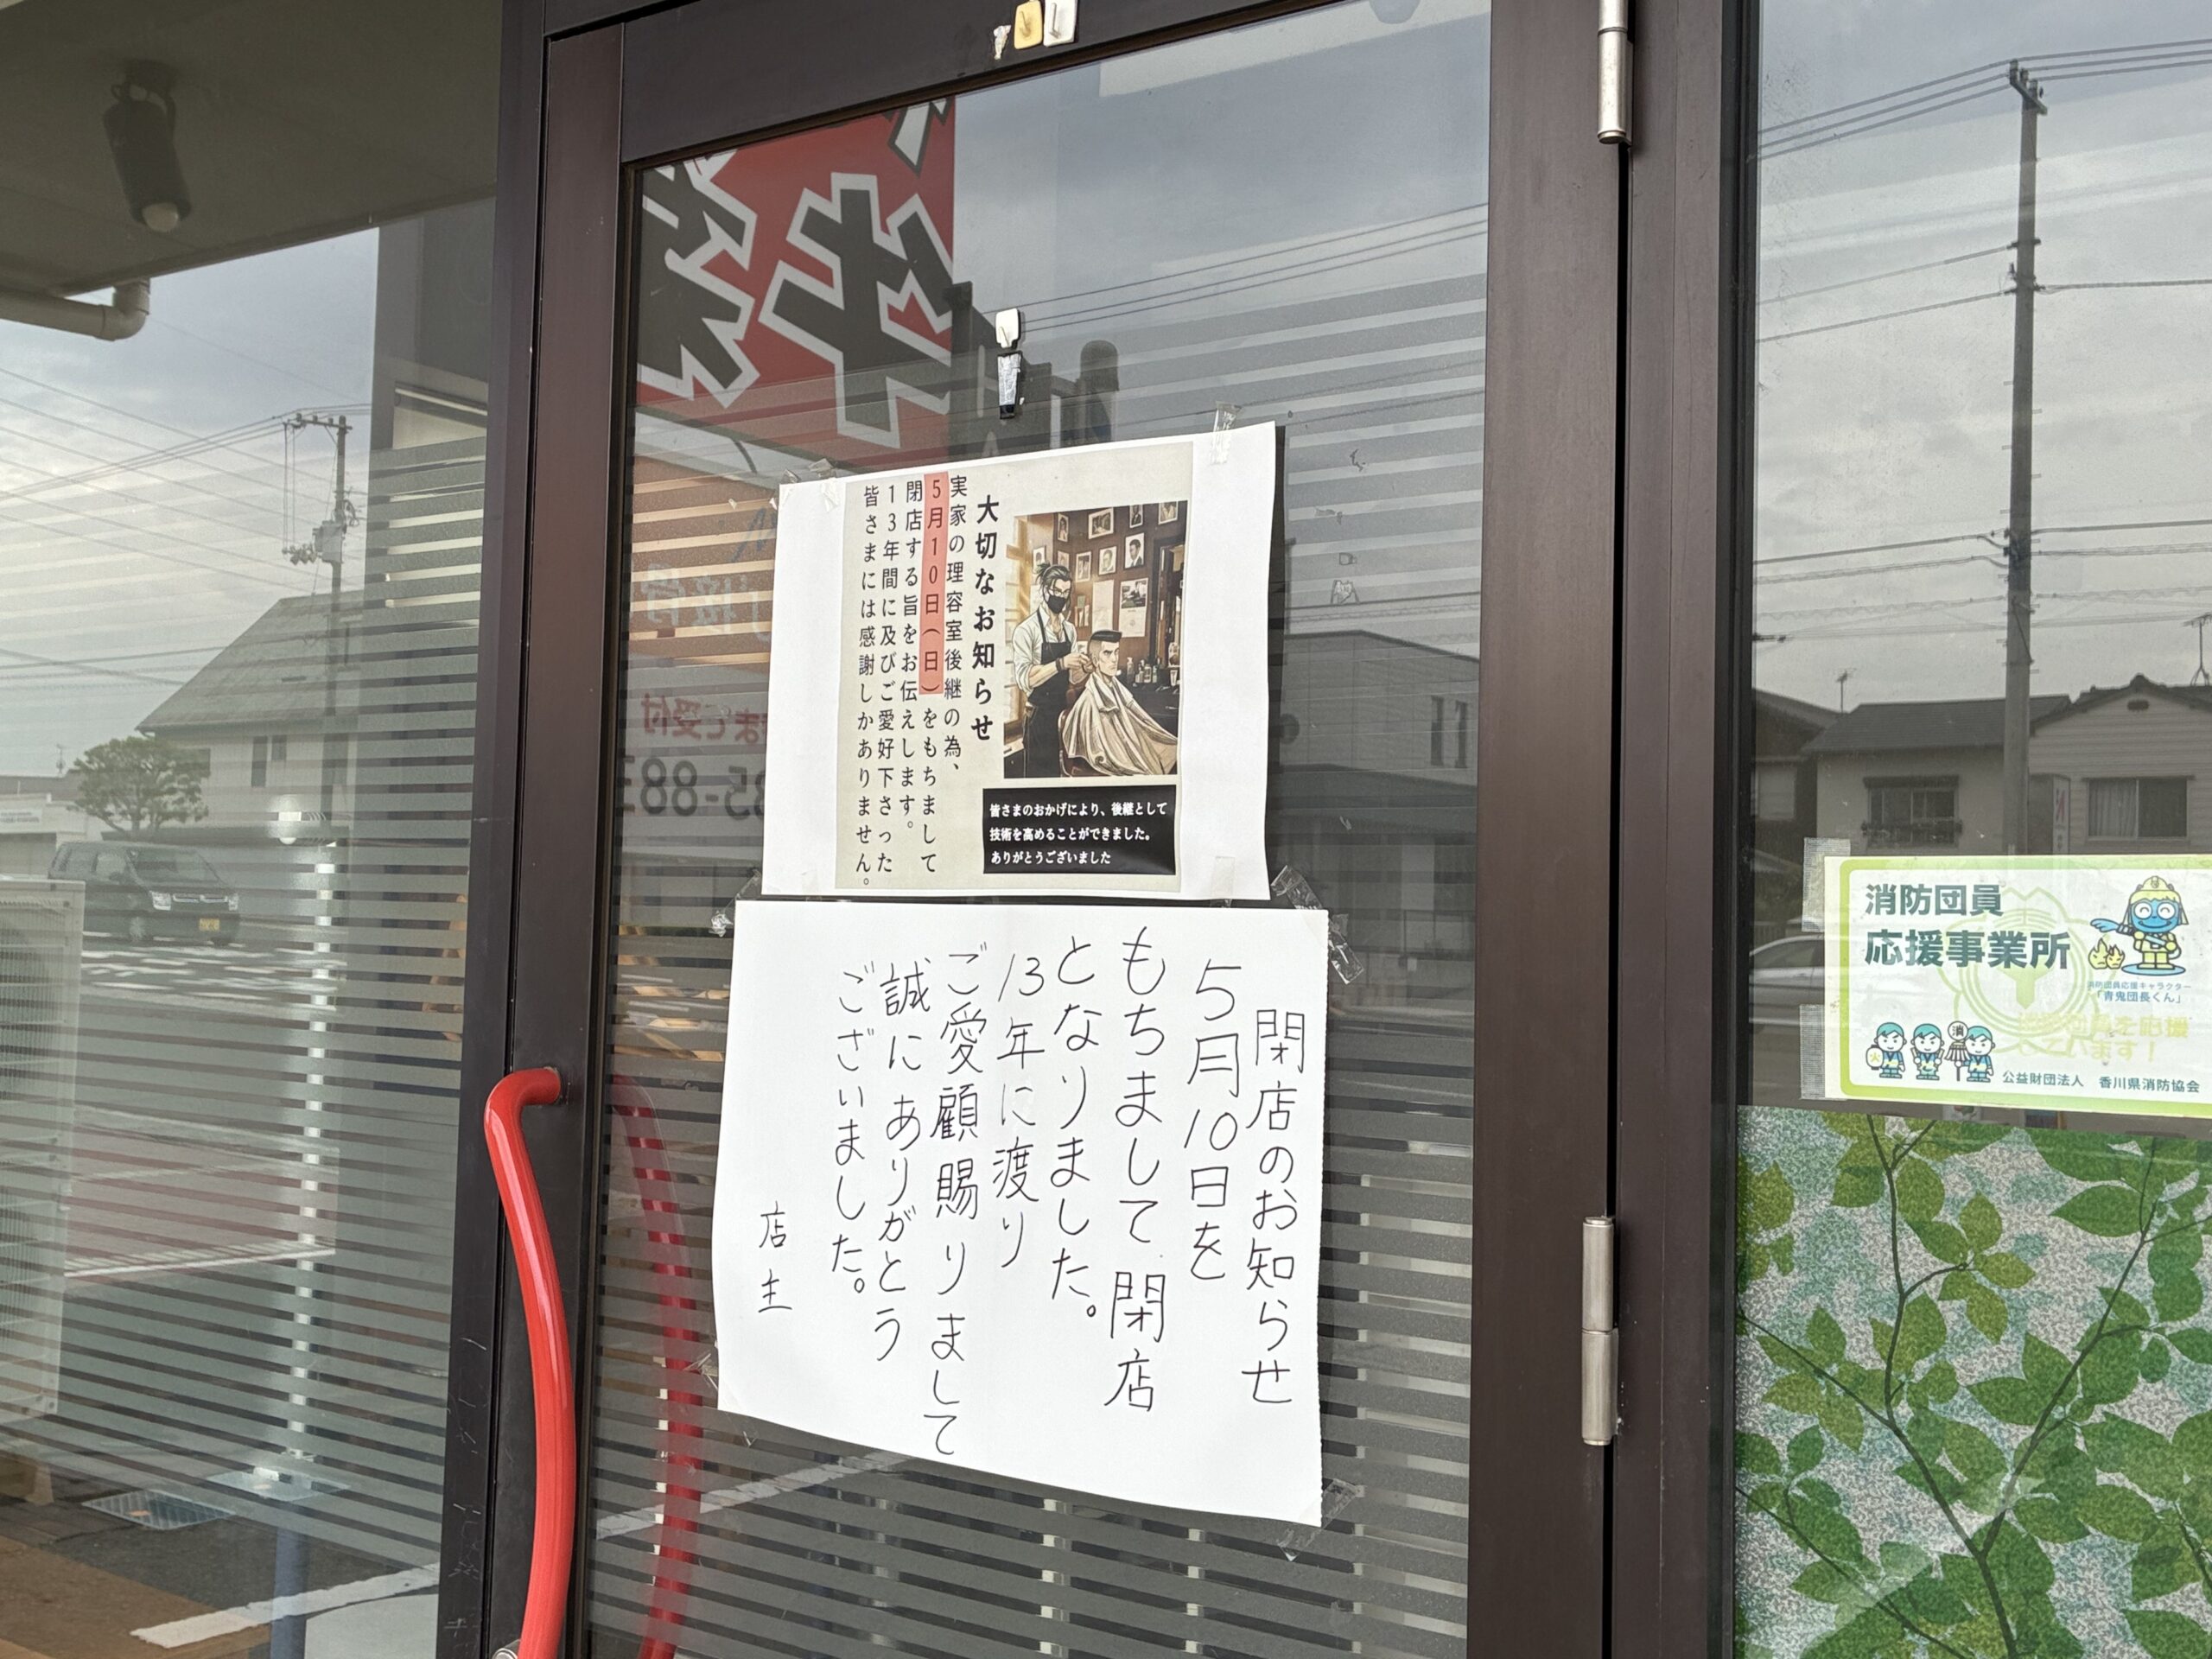 大切なお知らせ
実家の理容室後継の為、
5月10日(日)をもちまして
閉店する旨をお伝えします。
13年間に及びご愛好下さった
皆さまには感謝しかありません。
皆さまのおかげにより、後継として
技術を高めることができました。
ありがとうございました
閉店のお知らせ
5月10日を
もちまして閉店
となりました。
13年に渡り
ご愛顧賜りまして
誠にありがとう
ございました。
店主
消防団員
応援事業所
消防団員応援キャラクター
「青鬼団長くん」
消防団員を応援
しています!
公益財団法人 香川県消防協会